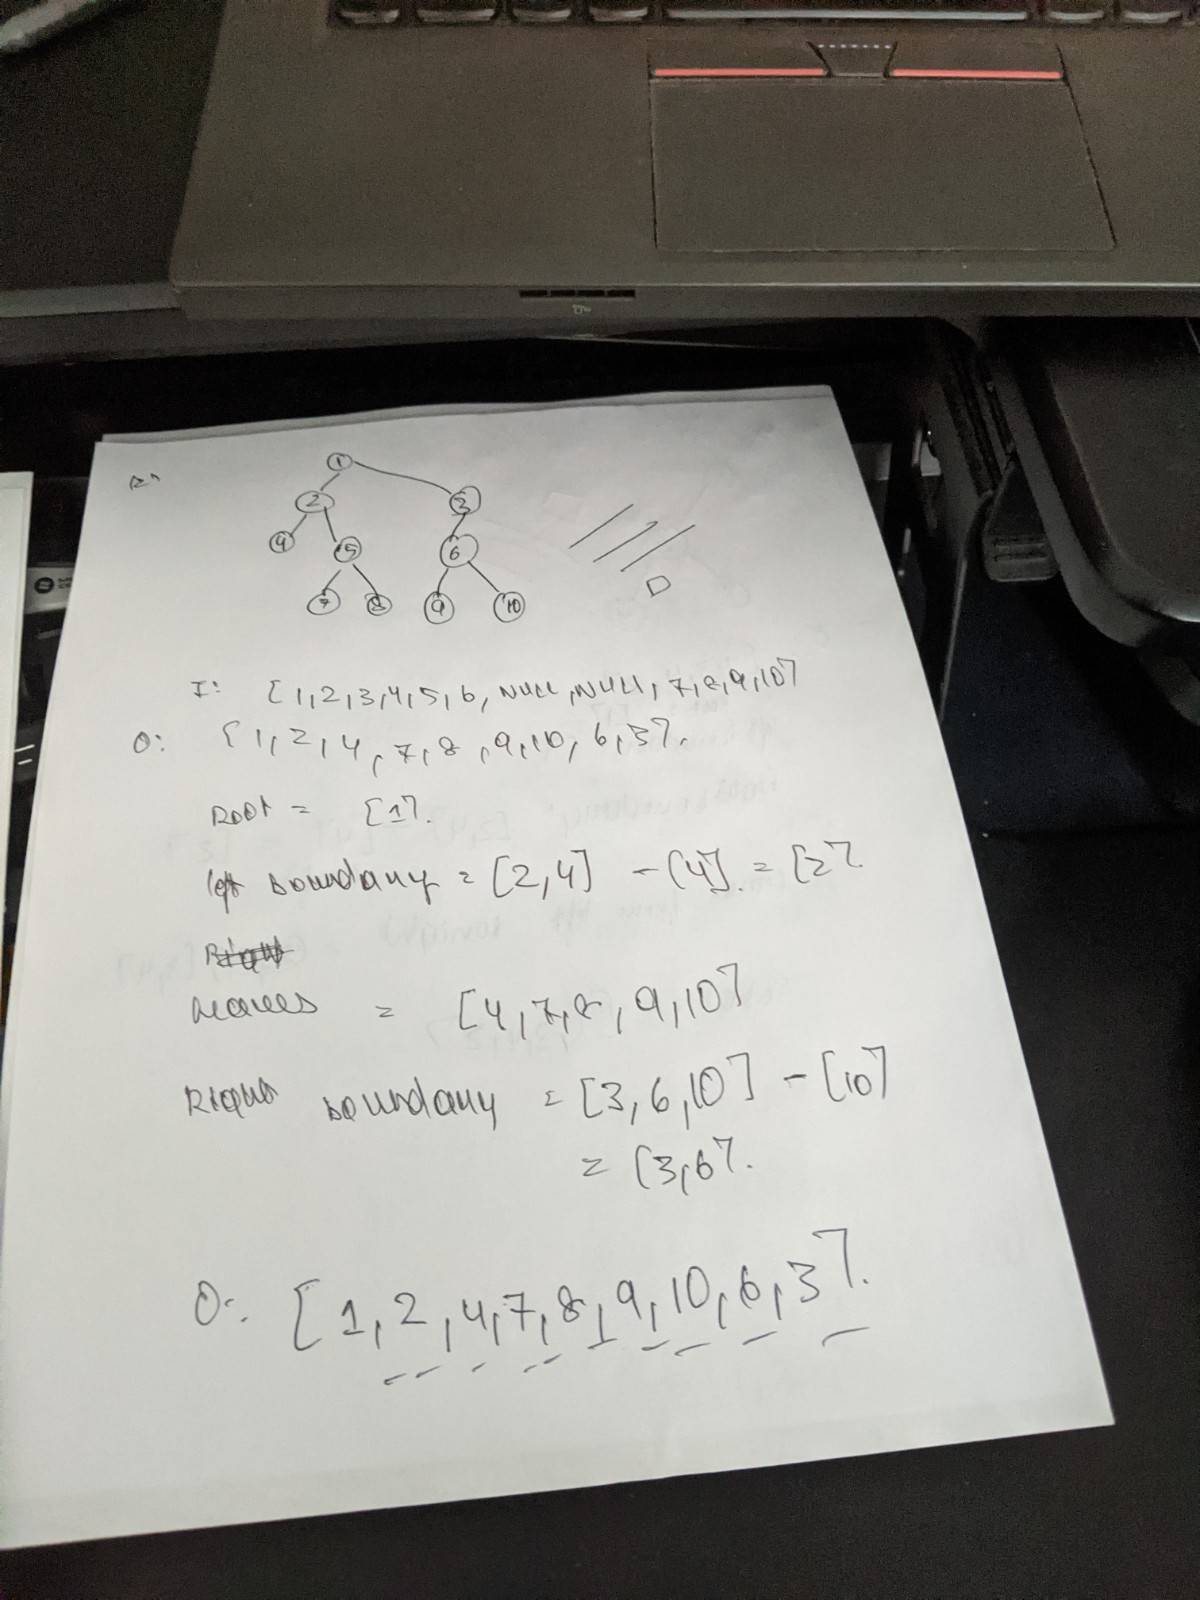 1
2 3
4 5 6
7 8 9 10
I: [1,2,3,4,5,6, NULL, NULL, 7,8,9,10]
O: [1,2,4,7,8,9,10,6,3].
Root = [1].
left boundary = [2,4] - [4]. = [2].
Leaves = [4,7,8,9,10]
Right boundary = [3,6,10] - [10]
= [3,6].
O:. [1,2,4,7,8,9,10,6,3].